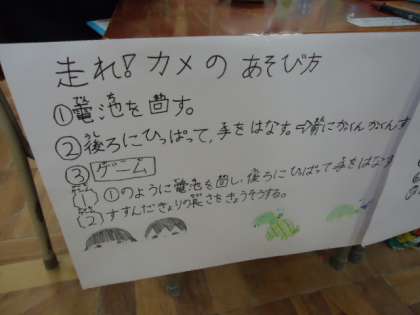 走れ!カメのあそび方
①電池を回す。
②後ろにひっぱって,手をはなす。⇒前にかくんかくんす
③ゲーム
(1)①のように電池を回し,後ろにひっぱって手をはなす
(2)すすんだきょりの長さをきょうそうする。